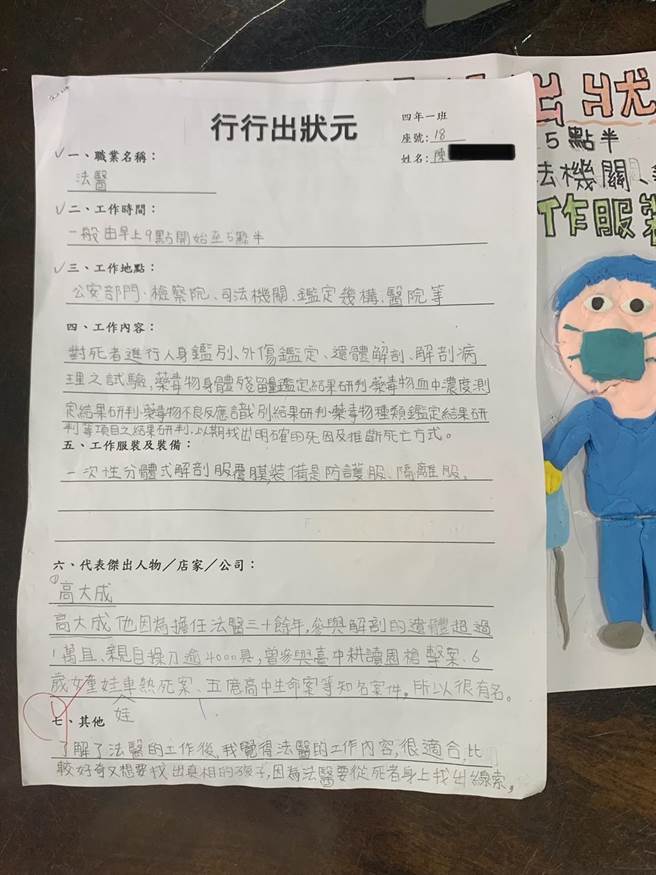 行行出狀元
四年一班
座號:18
姓名:陳
一、職業名稱:
法醫
二、工作時間:
一般由早上9點開始至5點半
三、工作地點:
公安部門、檢察院、司法機關、鑑定幾構、醫院等
四、工作內容:
對死者進行人身鑑別、外傷鑑定、遺體解剖、解剖病
理之試驗,藥毒物身體殘留量鑑定結果研判、藥毒物血中濃度測
定結果研判、藥毒物不良反應識別結果研判、藥毒物種類鑑定結果研
判等項目之結果研判,以期找出明確的死因及推斷死亡方式。
五、工作服裝及裝備:
一次性分體式解剖服覆膜,裝備是防護服、隔離服。
六、代表傑出人物/店家/公司:
高大成
高大成他因為擔任法醫三十餘年,參與解剖的遺體超過
1萬且、親自操刀逾4000具,曾參與臺中耕讀園槍擊案、6
歲女童娃車熱死案、五億高中生命案等知名案件。所以很有名。
娃
七、其他
了解了法醫的工作後,我覺得法醫的工作內容,很適合,比
較好奇又想要找出真相的孩子,因為法醫要從死者身上找出線索,
出狀
5點半
法機關、
工作服裝